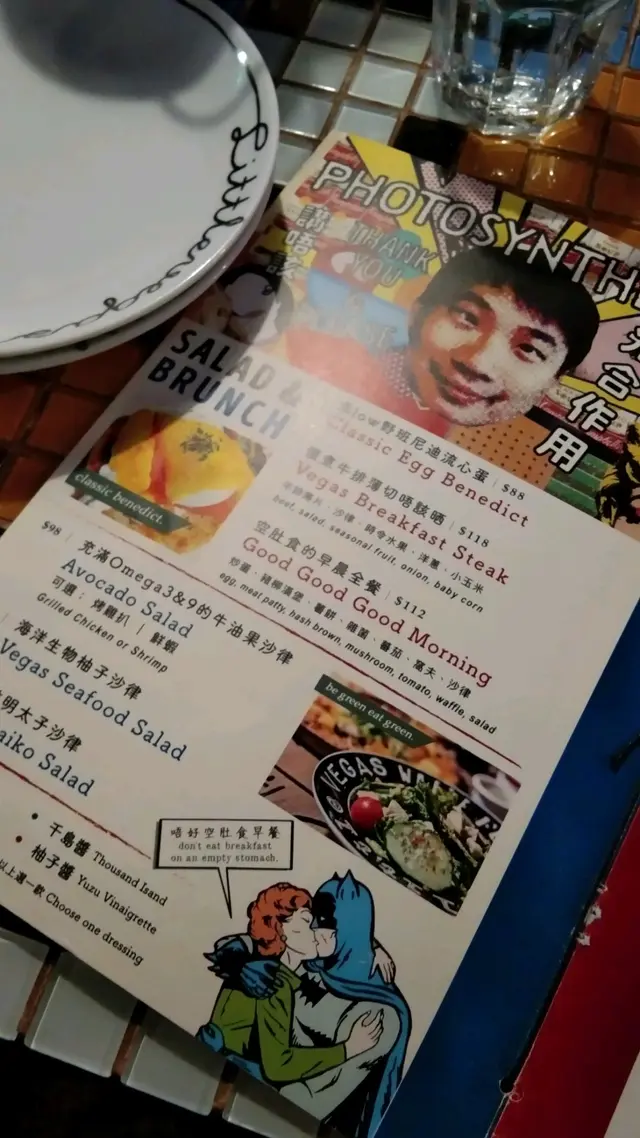 Little
PHOTOSYNTH
講唔該
THANK
YOU
合作用
SALAD &
BRUNCH
野班尼迪流心蛋 | $88
Classic Egg Benedict
牛排薄切唔該晒 | $118
Vegas Breakfast Steak
沙律、時令水果、洋蔥、小玉米
beef, salad, seasonal fruit, onion, baby corn
空肚食的早晨全餐 | $112
Good Good Good Morning
egg, meat patty, hash brown, mushroom, tomato, waffle, salad
classic benedict.
$98 | 充滿Omega3&9的牛油果沙律
Avocado Salad
可選：烤雞扒 / 鮮蝦
Grilled Chicken or Shrimp
海洋生物柚子沙律
Vegas Seafood Salad
明太子沙律
aiko Salad
be green eat green.
VEGAS
• 千島醬 Thousand Isand
• 柚子醬 Yuzu Vinaigrette
以上選一款 Choose one dressing
唔好空肚食早餐
don't eat breakfast
on an empty stomach.